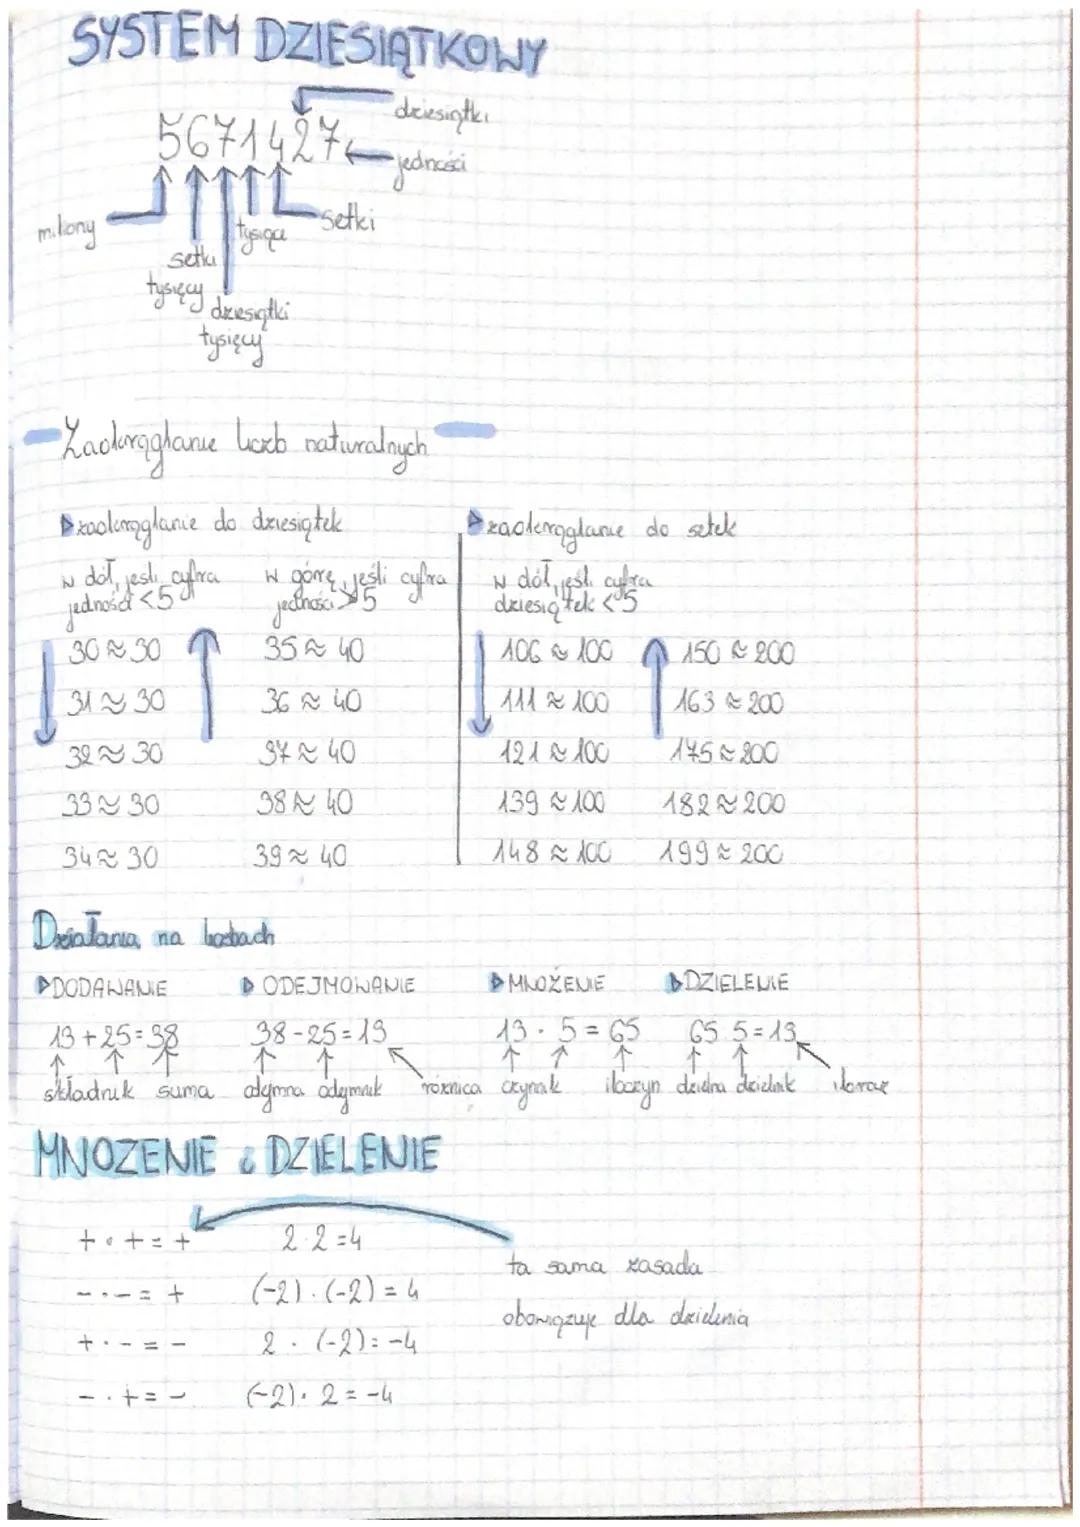 SYSTEM DZIESIĄTKOWY
dziesiątki
5671427
jedności
miliony
tysiące
setki
setki
tysięcy
dziesiątki
tysięcy
Zaokrąglanie liczb naturalnych
zaokrąglanie do dziesiątek
w dół, jeśli cyfra
jedności <5
w górę, jeśli cyfra
jedności ≥5
30≈30 35≈40
31≈30 36≈40
32≈30 37≈40
33≈30 38≈40
34≈30 39≈40
zaokrąglanie do setek
w dół, jeśli cyfra
dziesiątek <5
106≈100 150≈200
111≈100 163≈200
121≈100 175≈200
139≈100 182≈200
148≈100 199≈200
Działania na liczbach
DODAWANIE ODEJMOWANIE MNOŻENIE DZIELENIE
13+25=38 38-25=13 13·5=65 65:5=13
składnik suma odjemna odjemnik różnica czynnik iloczyn dzielna dzielnik iloraz
MNOŻENIE i DZIELENIE
+·+=+ 2·2=4
-·-=+ (-2)·(-2)=4
+·-=- 2·(-2)=-4
-·+=- (-2)·2=-4
ta sama zasada
obowiązuje dla dzielenia